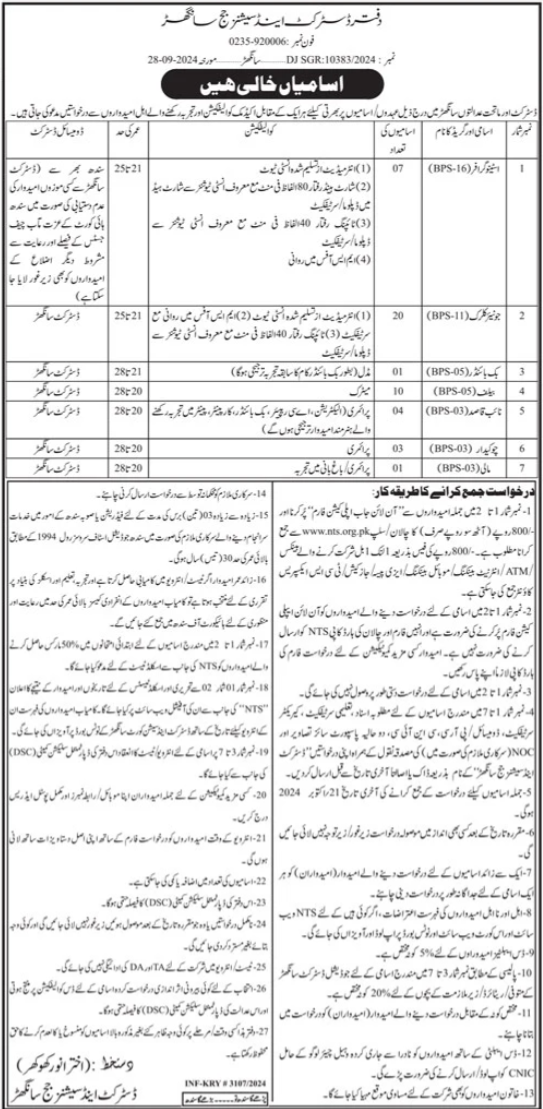 دفتر ڈسٹرکٹ اینڈ سیشنز جج سانگھڑ
فون نمبر: 0235-920006
نمبر: DJ SGR:10383/2024 سانگھڑ مورخہ 28-09-2024
اسامیاں خالی ہیں
ڈسٹرکٹ اور ماتحت عدالتوں سانگھڑ میں درج ذیل عہدوں/اسامیوں پر بھرتی کیلئے ہر ایک کے مقابل اکیڈمک کوالیفکیشن اور تجربہ رکھنے والے اہل امیدواروں سے درخواستیں مدعو کی جاتی ہیں۔
نمبر شمار اسامی اور گریڈ کا نام اسامیوں کی تعداد کوالیفکیشن عمر کی حد ڈومیسائل ڈسٹرکٹ
1 اسٹینوگرافر (BPS-16) 07
(1) انٹرمیڈیٹ از تسلیم شدہ انسٹی ٹیوٹ
(2) شارٹ ہینڈ رفتار 80 الفاظ فی منٹ مع معروف انسٹی ٹیوشنز سے شارٹ ہینڈ
میں ڈپلوما/سرٹیفکیٹ
(3) ٹائپنگ رفتار 40 الفاظ فی منٹ مع معروف انسٹی ٹیوشنز سے
ڈپلوما/سرٹیفکیٹ
(4) ایم ایس آفس میں روانی
21تا25
سندھ بھر سے (ڈسٹرکٹ
سانگھڑ سے کسی موزوں امیدوار کی
عدم دستیابی کی صورت میں سندھ
ہائی کورٹ کے عزت مآب چیف
جسٹس کے فیصلے اور رعایت سے
مشروط دیگر اضلاع کے
امیدواروں کو بھی زیر غور لایا جا
سکتا ہے)
2 جونیئر کلرک (BPS-11) 20
(1) انٹرمیڈیٹ از تسلیم شدہ انسٹی ٹیوٹ (2) ایم ایس آفس میں روانی مع
سرٹیفکیٹ (3) ٹائپنگ رفتار 40 الفاظ فی منٹ مع معروف انسٹی ٹیوشنز سے
ڈپلوما/سرٹیفکیٹ
21تا25 ڈسٹرکٹ سانگھڑ
3 بک بائنڈر (BPS-05) 01 مڈل (بطور بک بائنڈر کام کا سابقہ تجربہ ترجیحی ہوگا) 21تا28 ڈسٹرکٹ سانگھڑ
4 بیلف (BPS-05) 10 میٹرک 20تا28 ڈسٹرکٹ سانگھڑ
5 نائب قاصد (BPS-03) 04 پرائمری (الیکٹریشن، اے سی ریپیئر، بک بائنڈر، کارپینٹر، پینٹر میں تجربہ رکھنے
والے ہنرمند امیدوار ترجیحی ہوں گے) 20تا28 ڈسٹرکٹ سانگھڑ
6 چوکیدار (BPS-03) 03 پرائمری 20تا28 ڈسٹرکٹ سانگھڑ
7 مالی (BPS-03) 01 پرائمری/باغبانی میں تجربہ 20تا28 ڈسٹرکٹ سانگھڑ
درخواست جمع کرانے کا طریقہ کار:
1- نمبر شمار 1 تا 2 میں جملہ امیدواروں سے "آن لائن جاب اپلی کیشن فارم" پُر کرنا اور
800/- روپے (آٹھ سو روپے صرف) کا چالان/سلپ www.nts.org.pk سے جمع
کرانا مطلوب ہے۔ 800/- کی فیس بذریعہ 1 لنک 1 بل شرکت کرنے والے بینکس
ATM/انٹرنیٹ بینکنگ/موبائل بینکنگ/ایزی پیسہ/جاز کیش/ٹی سی ایس ایکسپریس
کاؤنٹر جمع کی جاسکتی ہے۔
2- نمبر شمار 1 تا 2 میں اسامی کے لئے درخواست دینے والے امیدواروں کو آن لائن اپلی
کیشن فارم پُر کرنے کی ضرورت ہے اور انہیں فارم اور چالان کی ہارڈ کاپی NTS کو ارسال
کرنے کی ضرورت نہیں ہے۔ امیدوار کسی مزید کمیونیکیشن کے لئے درخواست فارم کی
ہارڈ کاپی لازماً اپنے پاس رکھیں۔
3- نمبر شمار 1 تا 2 میں اسامی کے لئے درخواست دستی طور پر وصول نہیں کی جائے گی۔
4- نمبر شمار 3 تا 7 میں مندرج اسامیوں کے لئے مطلوبہ اسناد تعلیمی سرٹیفکیٹ، کیریکٹر
سرٹیفکیٹ، ڈومیسائل/پی آر سی، سی این آئی سی، دو حالیہ پاسپورٹ سائز تصاویر اور
NOC (سرکاری ملازم کی صورت میں) کی مصدقہ نقول کے ہمراہ اپنی درخواستیں "ڈسٹرکٹ
اینڈ سیشنز جج سانگھڑ" کے نام بذریعہ ڈاک یا اصالتاً آخری تاریخ سے قبل ارسال کردیں۔
5- جملہ اسامیوں کے لئے درخواست کے جمع کرانے کی آخری تاریخ 21/اکتوبر 2024
ہوگی۔
6- مقررہ تاریخ کے بعد کسی بھی انداز میں موصولہ درخواست زیر غور/زیر توجہ نہیں لائی جائیں
گی۔
7- ایک سے زائد اسامیوں کے لئے درخواست دینے والے امیدوار (امیدواران) کو ہر
ایک اسامی کے لئے جداگانہ طور پر درخواست دینی چاہئے۔
8- اہل اور نااہل امیدواروں کی فہرست اعتراضات، اگر کوئی ہیں کے لئے NTS ویب
سائٹ اور اس کورٹ ویب سائٹ اور نوٹس بورڈ پر اپ لوڈ اور آویزاں کی جائے گی۔
9- ڈس ایبلڈ امیدواروں کے لئے 5% کوٹہ مختص ہے۔
10- پالیسی کے مطابق نمبر شمار 3 تا 7 میں مندرج اسامی کے لئے جوڈیشل ڈسٹرکٹ سانگھڑ
کے متوفی/ریٹائرڈ/زیر ملازمت کے بچوں کے لئے 20% کوٹہ مختص ہے۔
11- مختص کوٹہ کے مقابل درخواست دینے والے امیدوار (امیدواران) کو درخواست میں
بتانا چاہئے۔
12- ڈس ایبلٹی کے ساتھ امیدواروں کو نادرا سے جاری کردہ وہیل چیئر لوگو کے حامل
CNIC کو اپ لوڈ/ارسال کرنے کی ضرورت پڑے گی۔
13- خاتون امیدواروں کو بھی شرکت کے لئے مساوی موقع مہیا کیا جائے گا۔
14- سرکاری ملازم کو محکمانہ توسط سے درخواست ارسال کرنی چاہئے۔
15- زیادہ سے زیادہ 03 (تین) برس کی مدت کے لئے فیڈریشن یا صوبہ سندھ کے امور میں خدمات
سرانجام دینے والے سرکاری ملازم کی صورت میں سندھ جوڈیشل اسٹاف سروس رولز 1994 کے مطابق
بالائی عمر کی حد 30 (تیس) سال ہوگی۔
16- زائد عمر امیدوار اگر ٹیسٹ/انٹرویو میں کامیابی حاصل کرتا ہے اور تجربہ، تعلیم اور اسکلز کی بنیاد پر
تقرری کے لئے منتخب ہوتا ہے تو کامیاب امیدواروں کے انفرادی کیسز بالائی عمر کی حد میں رعایت اور
منظوری کے لئے ہائیکورٹ آف سندھ میں جمع کئے جائیں گے۔
17- نمبر شمار 1 تا 2 میں مندرج اسامیوں کے لئے ابتدائی امتحانوں میں 50% مارکس حاصل کرنے
والے امیدواروں کو NTS کی جانب سے اسکلڈ ٹیسٹ کے لئے مدعو کیا جائے گا۔
18- نمبر شمار 01 تا 02 سے تحریری اور اسکلڈ ٹیسٹس کے لئے تاریخوں اور امیدوار کے نتیجے کا اعلان
"NTS" کی جانب سے ان کی آفیشل ویب سائٹ پر کیا جائے گا۔ کامیاب امیدواروں کی فہرست ان
کے انٹرویو کیلئے تاریخ کے ساتھ ڈسٹرکٹ اینڈ سیشن کورٹ سانگھڑ کے نوٹس بورڈ پر آویزاں کی جائے گی۔
19- نمبر شمار 3 تا 7 پر اسامی کے لئے انٹرویو/ٹیسٹ کا انعقاد اس دفتر کی ڈپارٹمنٹل سلیکشن کمیٹی (DSC)
کی جانب سے کیا جائے گا۔
20- کسی مزید کمیونیکیشن کے لئے جملہ امیدواران اپنا موبائل/رابطہ نمبرز اور مکمل پوسٹل ایڈریس
درج کریں۔
21- انٹرویو کے وقت امیدواروں کو درخواست فارم کے ساتھ اپنی اصل دستاویزات ساتھ لانی
ہوں گی۔
22- اسامیوں کی تعداد میں اضافہ یا کمی کی جاسکتی ہے۔
23- اس دفتر کی ڈپارٹمنٹل سلیکشن کمیٹی (DSC) کا فیصلہ حتمی ہوگا۔
24- نامکمل درخواستیں یا وہ جو مقررہ تاریخ کے بعد موصول ہوئیں زیر غور نہیں لائی جائیں گی اور کوئی وجہ
بتائے بغیر مسترد کردی جائیں گی۔
25- ٹیسٹ/انٹرویو میں شرکت کے لئے TA اور DA کی ادائیگی نہیں کی جائے گی۔
26- انتخاب کے لئے کوئی بیرونی اثر اندازی درخواست کردہ اسامی کے لئے ڈس کوالیفکیشن پر منتج ہوگی
اور اس عدالت کی ڈپارٹمنٹل سلیکشن کمیٹی (DSC) کا فیصلہ حتمی ہوگا۔
27- دفتر ہذا کسی وقت/مرحلے پر کوئی وجہ ظاہر کئے بغیر مذکورہ بالا اسامیوں کو منسوخ یا کالعدم کرنے کا حق
محفوظ رکھتا ہے۔
دستخط: (اختر انور کھوکھر)
ڈسٹرکٹ اینڈ سیشنز جج سانگھڑ
INF-KRY # 3107/2024